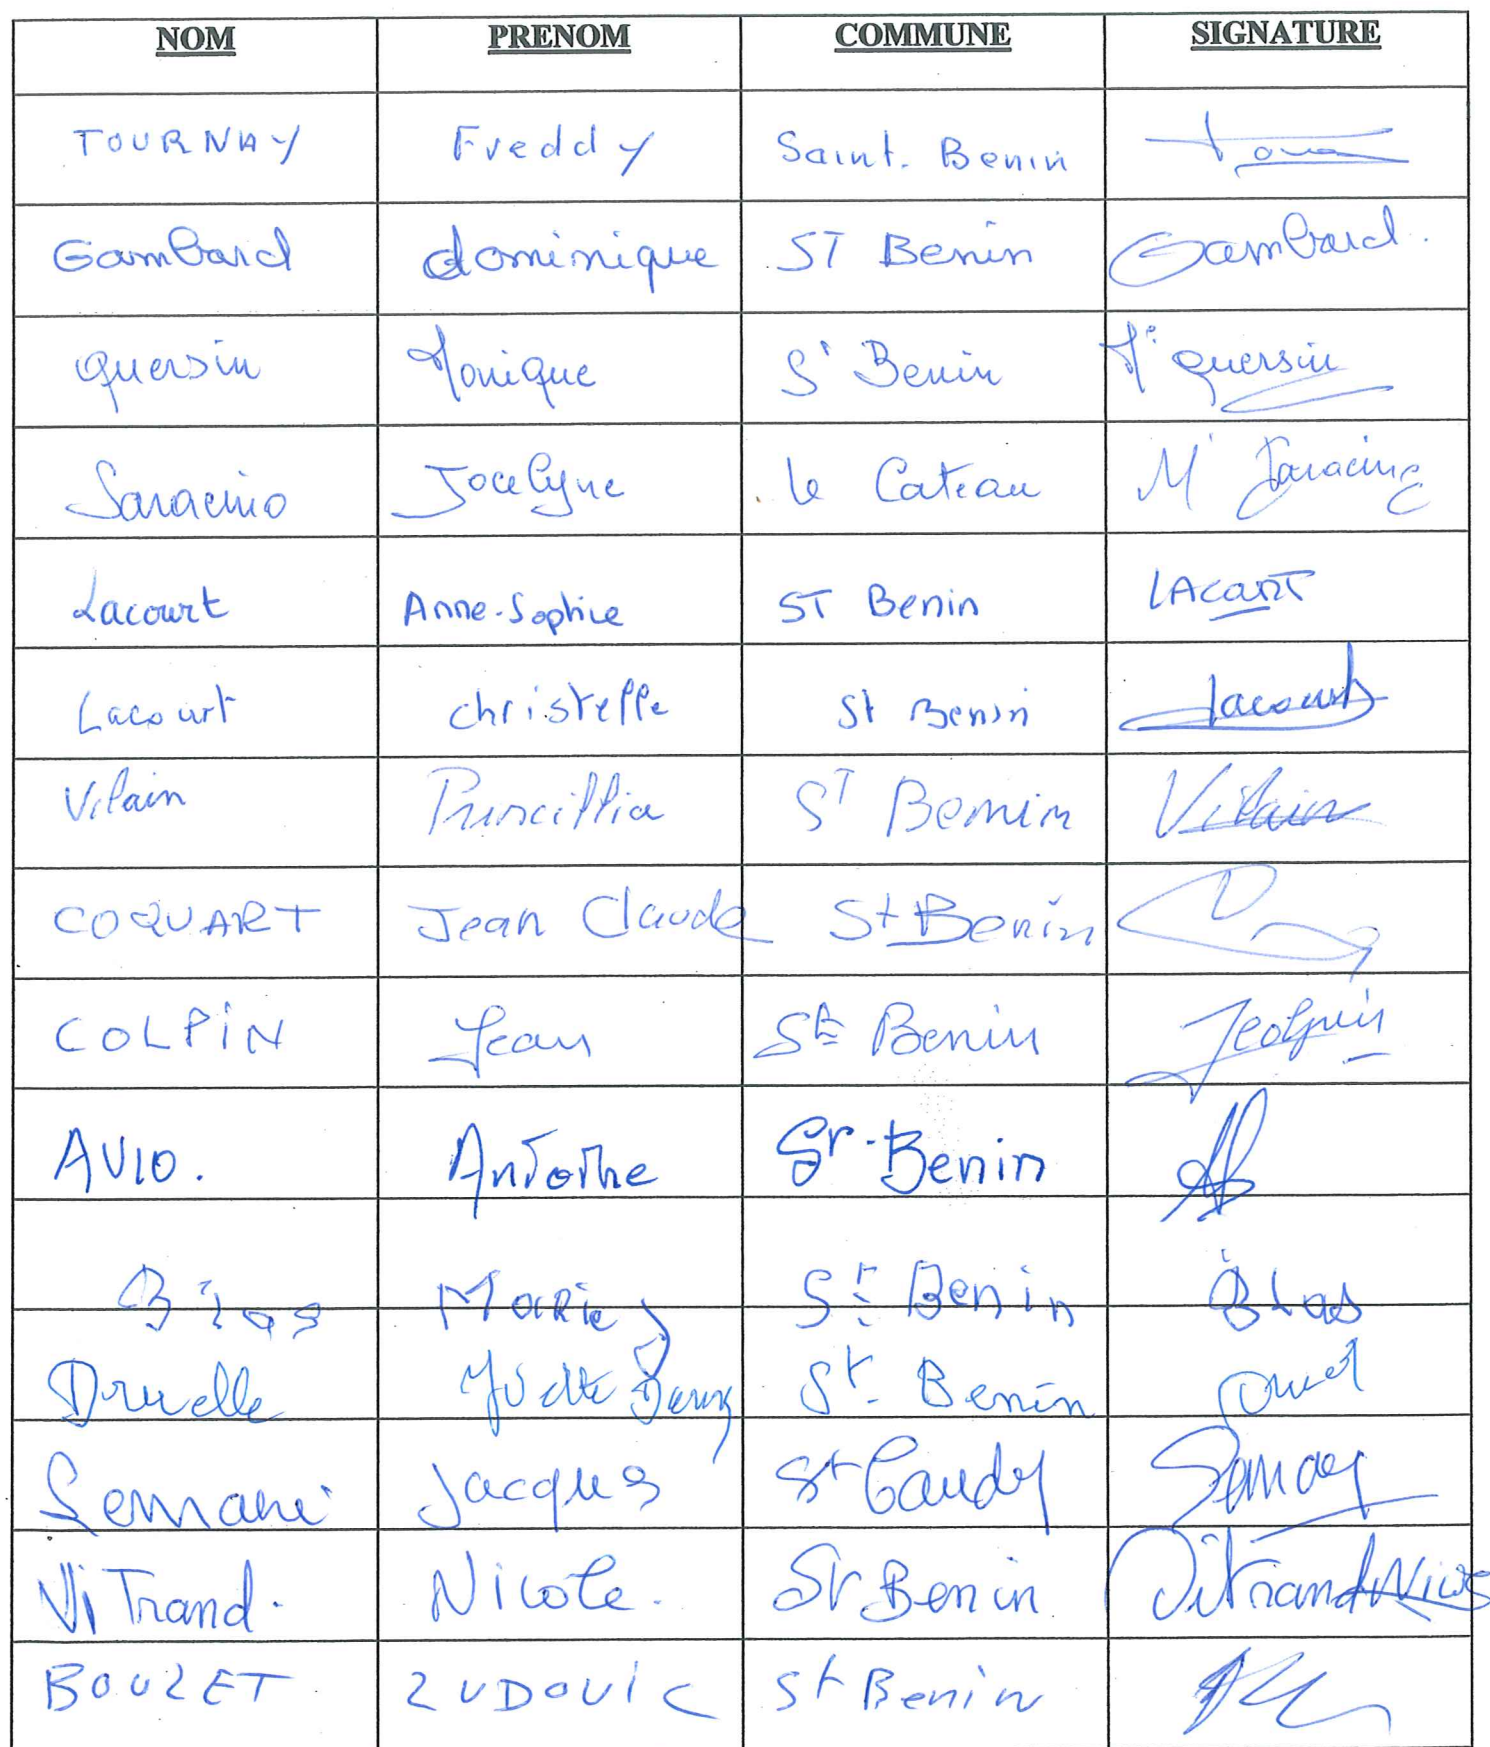 NOM PRENOM COMMUNE SIGNATURE
TOURNAY Freddy Saint. Benin
Gambard dominique ST Benin Gambard.
quersin Monique St Benin Me quersin
Saracino Jocelyne le Cateau M Saracino
Lacourt Anne-Sophie ST Benin LAcourT
Lacourt christelle St Benin Lacourt
Vilain Priscillia ST Benin Vilain
COQUART Jean Claude St Benin
COLPIN Jean St Benin
AVIO. Antoine St-Benin
Blas Marie St Benin Blas
Druelle Yvette St. Benin
Jacques St
ViTrand. Nicole. St Benin ViTrand Nicole
BOUZET LUDOVIC St Benin